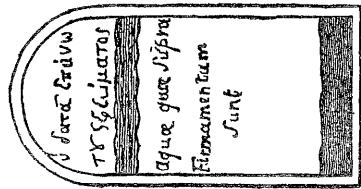 ὑδατα ἐπάνω
τȣ ςερεώματος
Aquæ quæ supra
Firmamentum
sunt